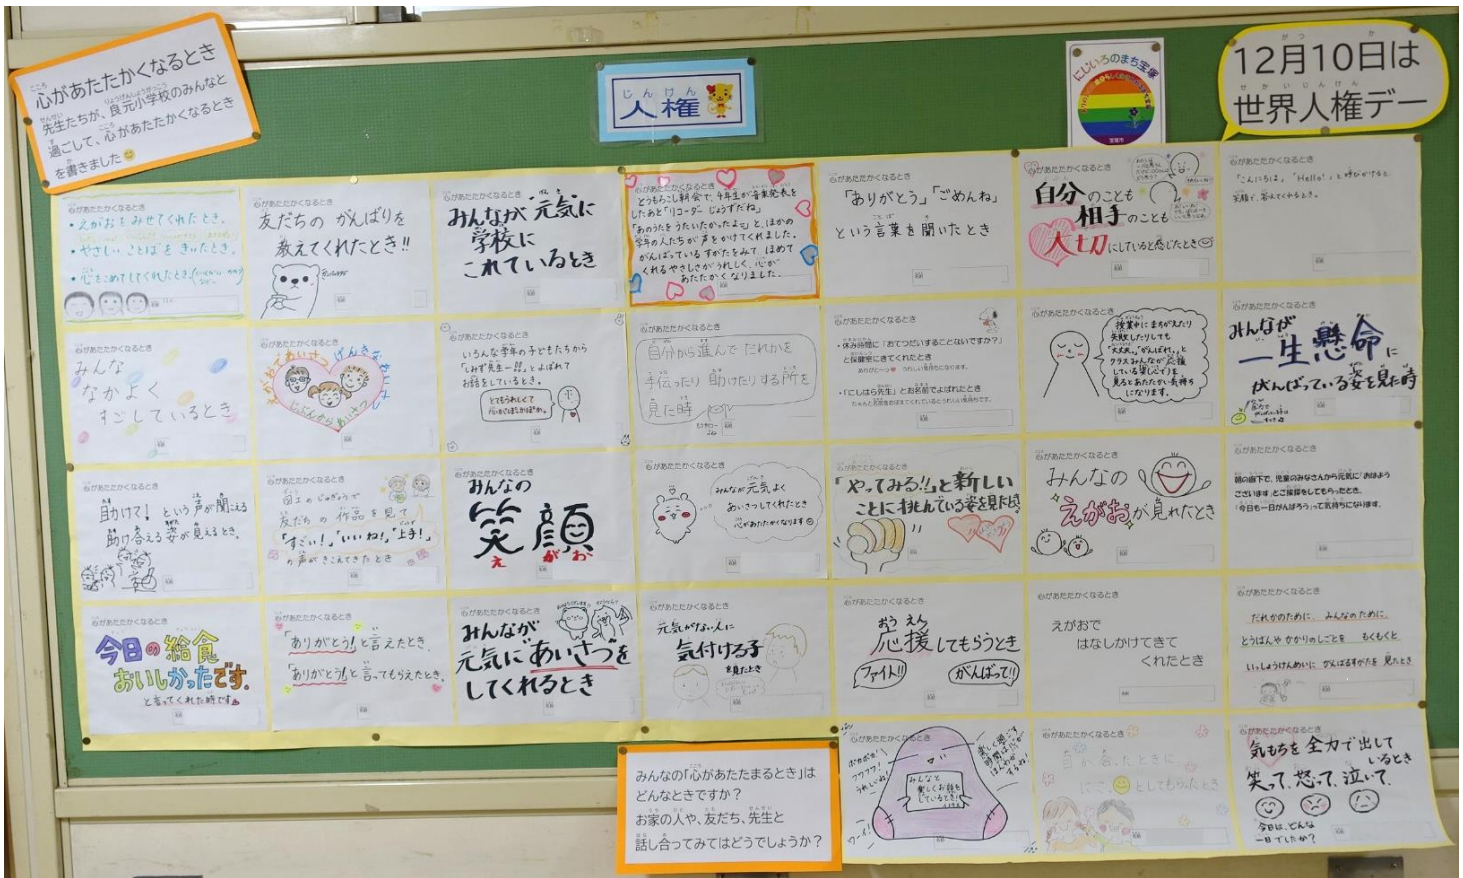 心があたたかくなるとき
先生たちが、良元小学校のみんなと
過ごして、心があたたかくなるとき
を書きました
じんけん
人権
にじいろのまち宝塚
12月10日は
世界人権デー
心があたたかくなるとき
・えがおをみせてくれたとき。
・やさしい ことばを きいたとき。
・心をこめてしてくれたとき。
心があたたかくなるとき
友だちの がんばりを
教えてくれたとき!!
心があたたかくなるとき
みんなが 元気に
学校に
これているとき
心があたたかくなるとき
とうもろこし朝会で、4年生が音楽発表を
したあと「リコーダーじょうずだね」
「あのうたをうたいたかったよ」と、ほかの
学年の人たちが声をかけてくれました。
がんばっているすがたをみて、ほめて
くれるやさしさがうれしく、心が
あたたかくなりました。
心があたたかくなるとき
「ありがとう」「ごめんね」
という言葉を聞いたとき
心があたたかくなるとき
自分のことも
相手のことも
大切にしていると感じたとき
心があたたかくなるとき
「こんにちは」 「Hello!」と呼びかけると
笑顔で、答えてくれるとき。
心があたたかくなるとき
みんな
なかよく
すごしているとき
心があたたかくなるとき
えがおであいさつ
げんきなあいさつ
じぶんからあいさつ
心があたたかくなるとき
いろんな学年の子どもたちから
「しみず先生ー!!」とよばれて
お話をしているとき。
とてもうれしくて
心がぽかぽか。
心があたたかくなるとき
自分から進んで だれかを
手伝ったり 助けたりする所を
見た時
心があたたかくなるとき
・休み時間に「おてつだいすることないですか?」
と保健室にきてくれたとき
ありがと〜 うれしい気持ちになります。
・「にしはら先生」とお名前でよばれたとき
ちゃんと名前をおぼえてくれているとうれしい気持ちです。
心があたたかくなるとき
授業中にまちがえたり
失敗したりしても
「大丈夫。」「がんばれ。」と
クラスみんなが応援
している姿(心で)を
見るとあたたかい気持ち
になります。
心があたたかくなるとき
みんなが
一生懸命に
がんばっている姿を見た時
心があたたかくなるとき
助けて!という声が聞こえる
助け合える姿が見えるとき。
心があたたかくなるとき
図工のじゅぎょうで
友だちの 作品を見て
「すごい!」「いいね!」「上手!」
の声がきこえてきたとき
心があたたかくなるとき
みんなの
笑顔
えがお
心があたたかくなるとき
みんなが元気よく
あいさつしてくれたとき
心があたたかくなります
心があたたかくなるとき
「やってみる!!」と新しい
ことに挑んでいる姿を見たとき
心があたたかくなるとき
みんなの
えがおが見れたとき
心があたたかくなるとき
朝の廊下で、児童のみなさんから元気に「おはよう
ございます」とご挨拶をしてもらったとき。
「今日も一日がんばろう」って気持ちになります。
心があたたかくなるとき
今日の給食
おいしかったです。
と言ってくれた時です
心があたたかくなるとき
「ありがとう!」と言えたとき、
「ありがとう!」と言ってもらえたとき。
心があたたかくなるとき
みんなが
元気に"あいさつ"を
してくれるとき
心があたたかくなるとき
元気がない人に
気付ける子
を見たとき
心があたたかくなるとき
おうえん
応援してもらうとき
ファイト!!
がんばって!!
心があたたかくなるとき
えがおで
はなしかけてきて
くれたとき
心があたたかくなるとき
だれかのために、みんなのために、
とうばんや かかりのしごとを もくもくと
いっしょうけんめいに がんばるすがたを 見たとき
みんなの「心があたたまるとき」は
どんなときですか?
お家の人や、友だち、先生と
話し合ってみてはどうでしょうか?
心があたたかくなるとき
ポカポカ!
フワフワ!
うれしいね!
ワーイ!
みんなと
楽しくお話を
しているとき!
心があたたかくなるとき
目が合ったときに
にこっ としてもらったとき
心があたたかくなるとき
気もちを全力で出して
いるとき
笑って、怒って、泣いて、
今日は、どんな
一日でしたか?